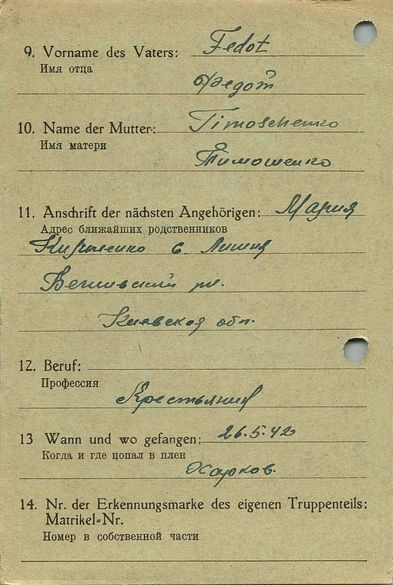 9. Vorname des Vaters: Fedot
Имя отца
Федот
10. Name der Mutter: Timoschenko
Имя матери
Тимошенко
11. Anschrift der nächsten Angehörigen: Мария
Адрес ближайших родственников
с.
Киевская обл.
12. Beruf:
Профессия
Крестьянин
13 Wann und wo gefangen: 26.5.42
Когда и где попал в плен
Харков.
14. Nr. der Erkennungsmarke des eigenen Truppenteils:
Matrikel-Nr.
Номер в собственной части